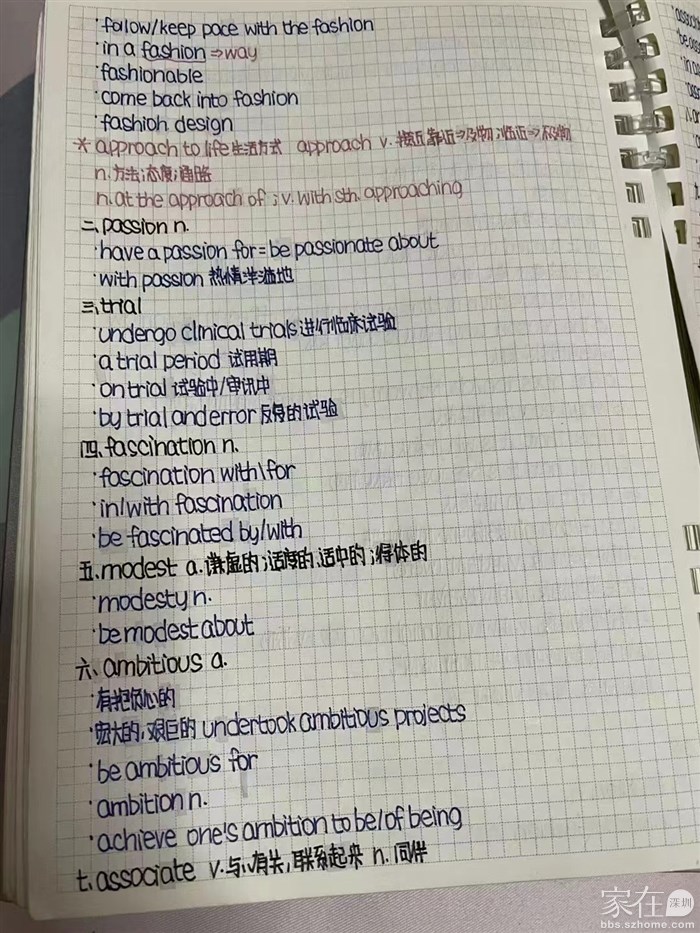 ·follow/keep pace with the fashion
·in a fashion ⇒way
·fashionable
·come back into fashion
·fashion design
* approach to life 生活方式 approach v. 接近,靠近⇒及物;临近⇒不及物
n.方法;态度;道路
n.at the approach of ; v. with sth. approaching
二.passion n.
·have a passion for = be passionate about
·with passion 热情洋溢地
三.trial
·undergo clinical trials 进行临床试验
·a trial period 试用期
·on trial 试验中/审讯中
·by trial and error 反复的试验
四.fascination n.
·fascination with\for
·in/with fascination
·be fascinated by/with
五.modest a.谦虚的;适度的,适中的;得体的
·modesty n.
·be modest about
六、ambitious a.
·有抱负心的
·宏大的,艰巨的 undertook ambitious projects
·be ambitious for
·ambition n.
·achieve one's ambition to be/of being
七.associate v.与..有关,联系起来 n. 同伴
家在深圳
bbs.szhome.com